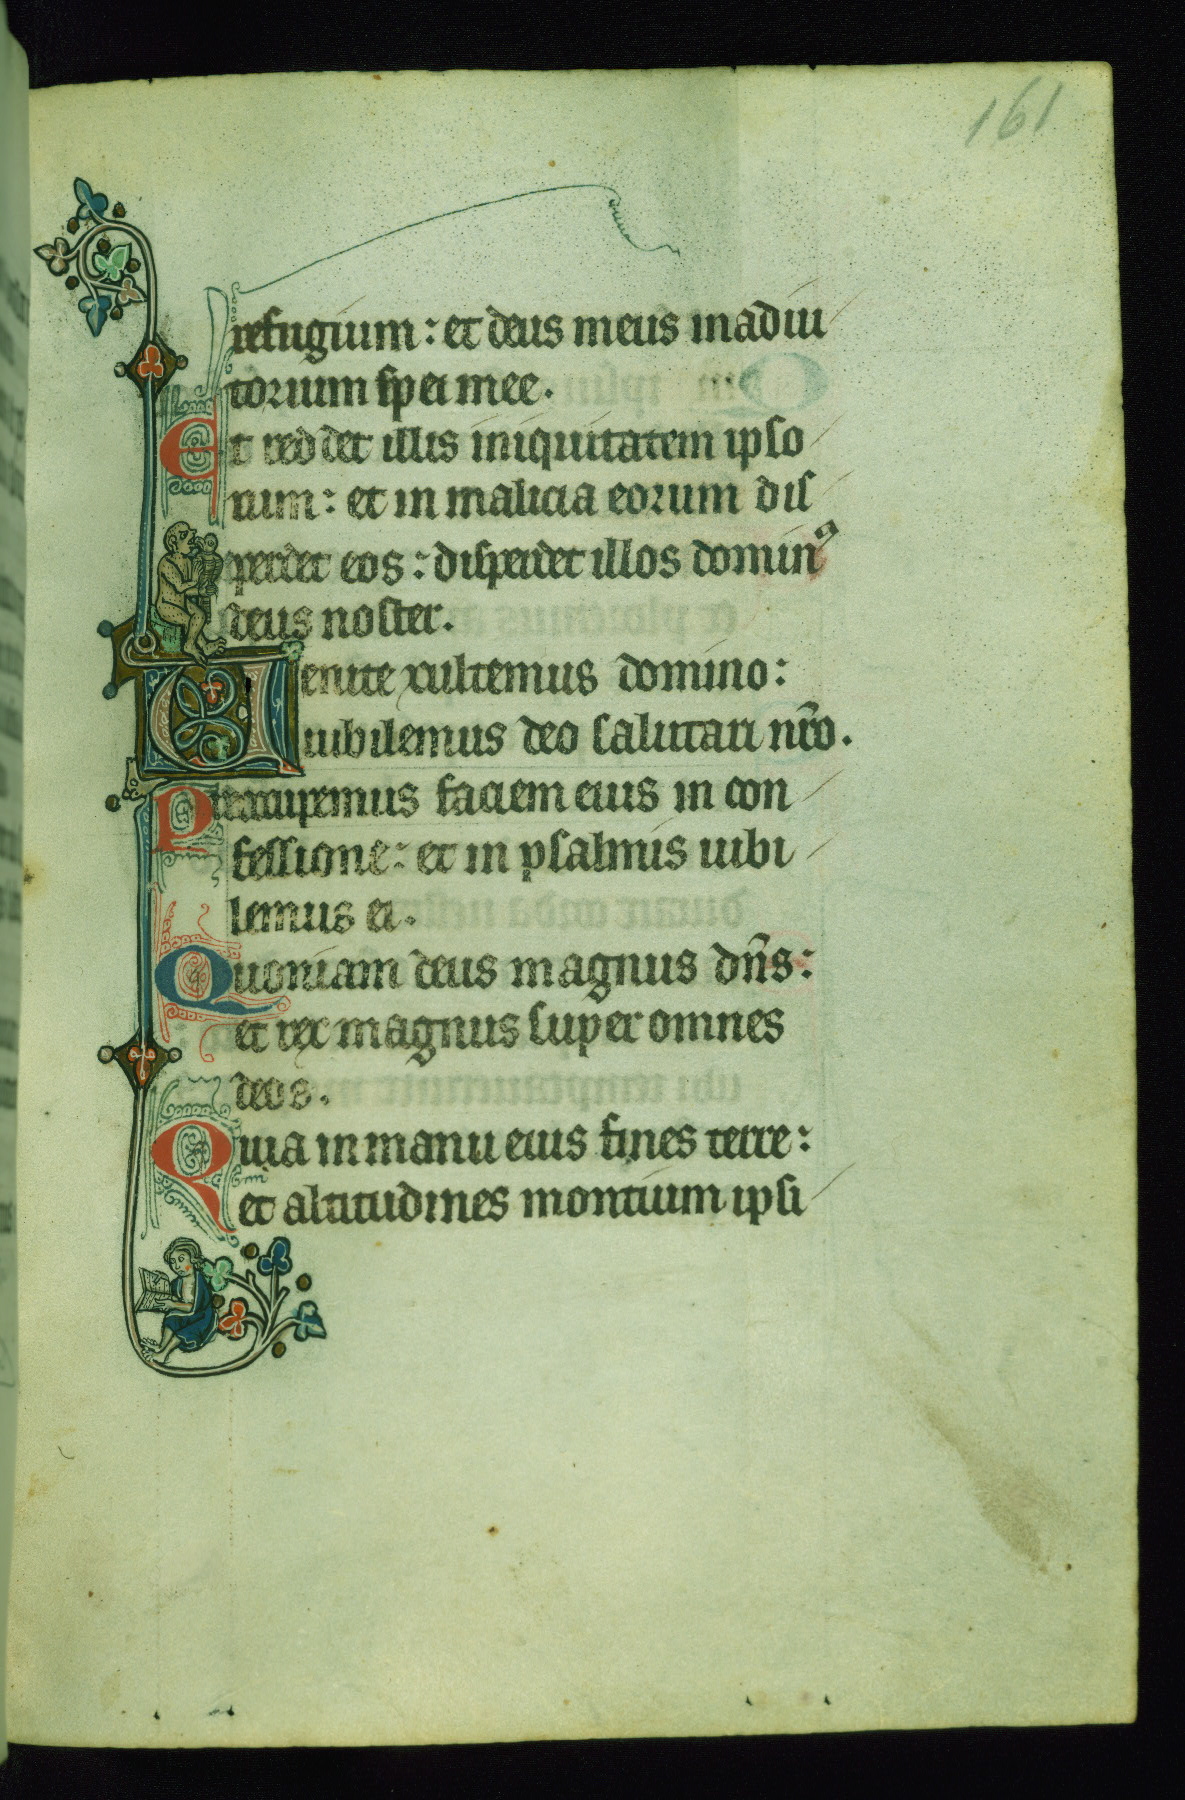 161
refugium : et deus meus in adiu
torium spei mee.
Et reddet illis iniquitatem ipso
rum : et in malicia eorum dis
perdet eos : disperdet illos domin⁹
deus noster.
Uenite exultemus domino :
iubilemus deo salutari nr̄o.
Preoccupemus faciem eius in con
fessione : et in psalmis iubi
lemus ei.
Quoniam deus magnus dn̄s :
et rex magnus super omnes
deos.
Quia in manu eius fines terre :
et altitudines montium ipsi